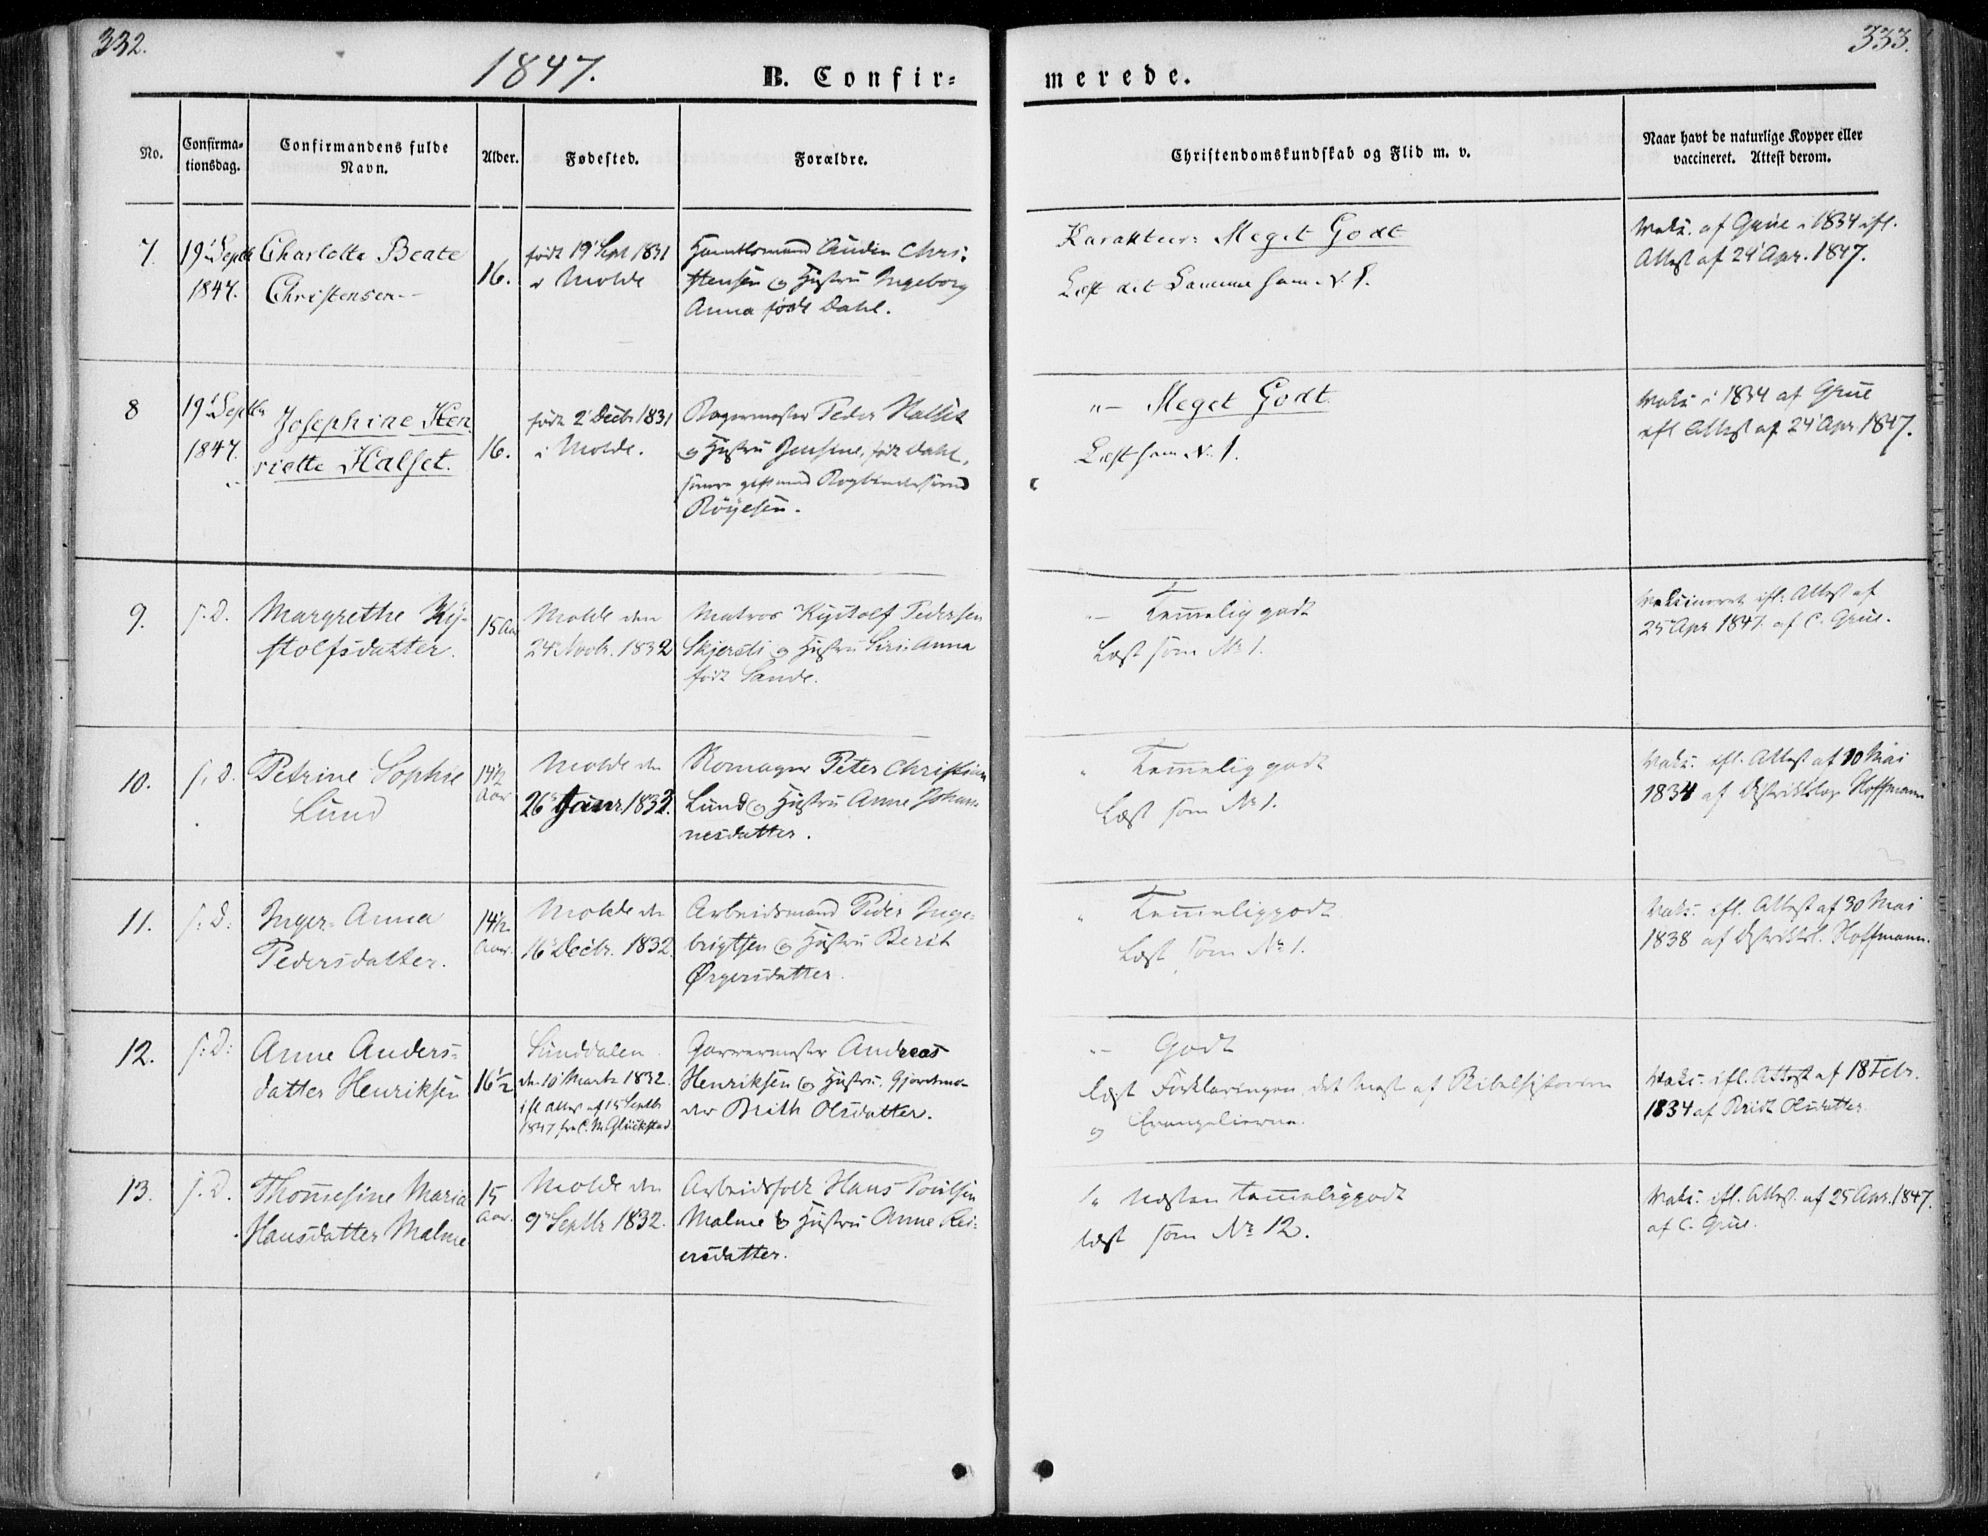 332.
333.
1847.
B. Confir=
merede.
No.
Confirma=
tionsdag.
Confirmandens fulde
Navn.
Alder.
Fødested.
Forældre.
Christendomskundskab og Flid m. v.
Naar havt de naturlige Kopper eller
vaccineret. Attest derom.
7.
19' Septb
1847.
Charlotte Beate
Christensen
16.
født 19' Sept 1831
i Molde
Audin Chri-
stensen og Hustru Ingeborg
Anna født Dahl.
Karakteer: Meget Godt
Læst det Samme som N. 1.
Vaks. af Grüe i 1834 ifl.
Attest af 24' Apr. 1847.
8
19' Septbr
1847.
Josephine Hen
riette Halset.
16.
født 2' Decbr 1831
i Molde.
Bagermester Peder Halset
og Hustru Jensine, født Dahl,
gift med
Röyesen.
"— Meget Godt
Læst som N. 1.
Vaks. i 1834 af Grüe
ifl Attest af 24' Apr 1847.
9.
s. D.
Margrethe Ky-
stolfsdatter.
15 Aar
Molde den
24 Novbr. 1832
Matros Kystolf Pedersen
og Hustru Siri Anna
født Sande.
"— Temmelig godt
Læst som No 1.
Vaksineret ifl. Attest af
25 Apr 1847. af C. Grüe.
10.
s. D.
Petrine Sophie
Lund
14½
Aar
Molde den
26 Janr 1833.
Peter Christian
Lund og Hustru Anne Johan
nesdatter.
" Temmelig godt
Læst som No 1.
Vaks. ifl. Attest af 10 Mai
1834 af Distriktslæge Hoffmann
11.
s. D.
Inger Anna
Pedersdatter.
14½
Aar.
Molde den
16 Decbr. 1832
Arbeidsmand Peder Inge-
brigtsen og Hustru Berit
Ørgersdatter.
" Temmelig godt
Læst som No 1.
Vaks. ifl. Attest af 30 Mai
1838 af Distriktsl. Hoffmann.
12.
s: D:
Anne Anders-
datter Henriksen
16½
Sunddalen
den 10 Marts 1832.
ifl Attest af 15 Septbr
1847 fra C. M. Glückstad
Garvermester Andreas
Henriksen og Hustru, Gjordemo-
der Brith Olsdatter.
"— Godt
læst Forklaringen, det meste af Bibelhistorien
og Evangelierne.
Vaks. ifl. Attest af 18 Febr.
1834 af Bridt Olsdatter
13.
s. D.
Thomesine Maria
Hansdatter Malme
15
Aar.
Molde den
9 Septbr 1832.
Arbeidsfolk Hans Poulsen
Malme & Hustru Anne Rei-
ersdatter.
" Næsten temmelig godt
læst som No 12.
Vaks. ifl. Attest. af 25 Apr. 1847.
af C. Grüe.